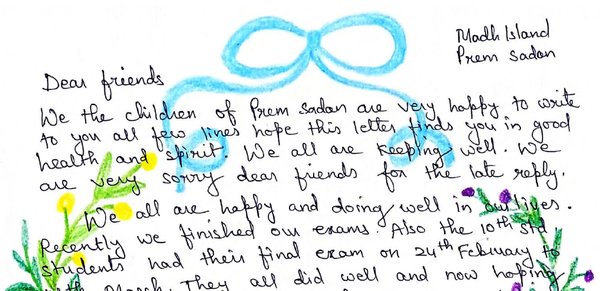 Madh Island
Prem Sadan
Dear friends
We the children of Prem Sadan are very happy to write
to you all few lines hope this letter finds you in good
health and spirit. We all are keeping well. We
are very sorry dear friends for the late reply.
We all are happy and doing well in our lives.
Recently we finished our exams. Also the 10th std
students had their final exam on 24th Febuary to
March. They all did well and now hoping